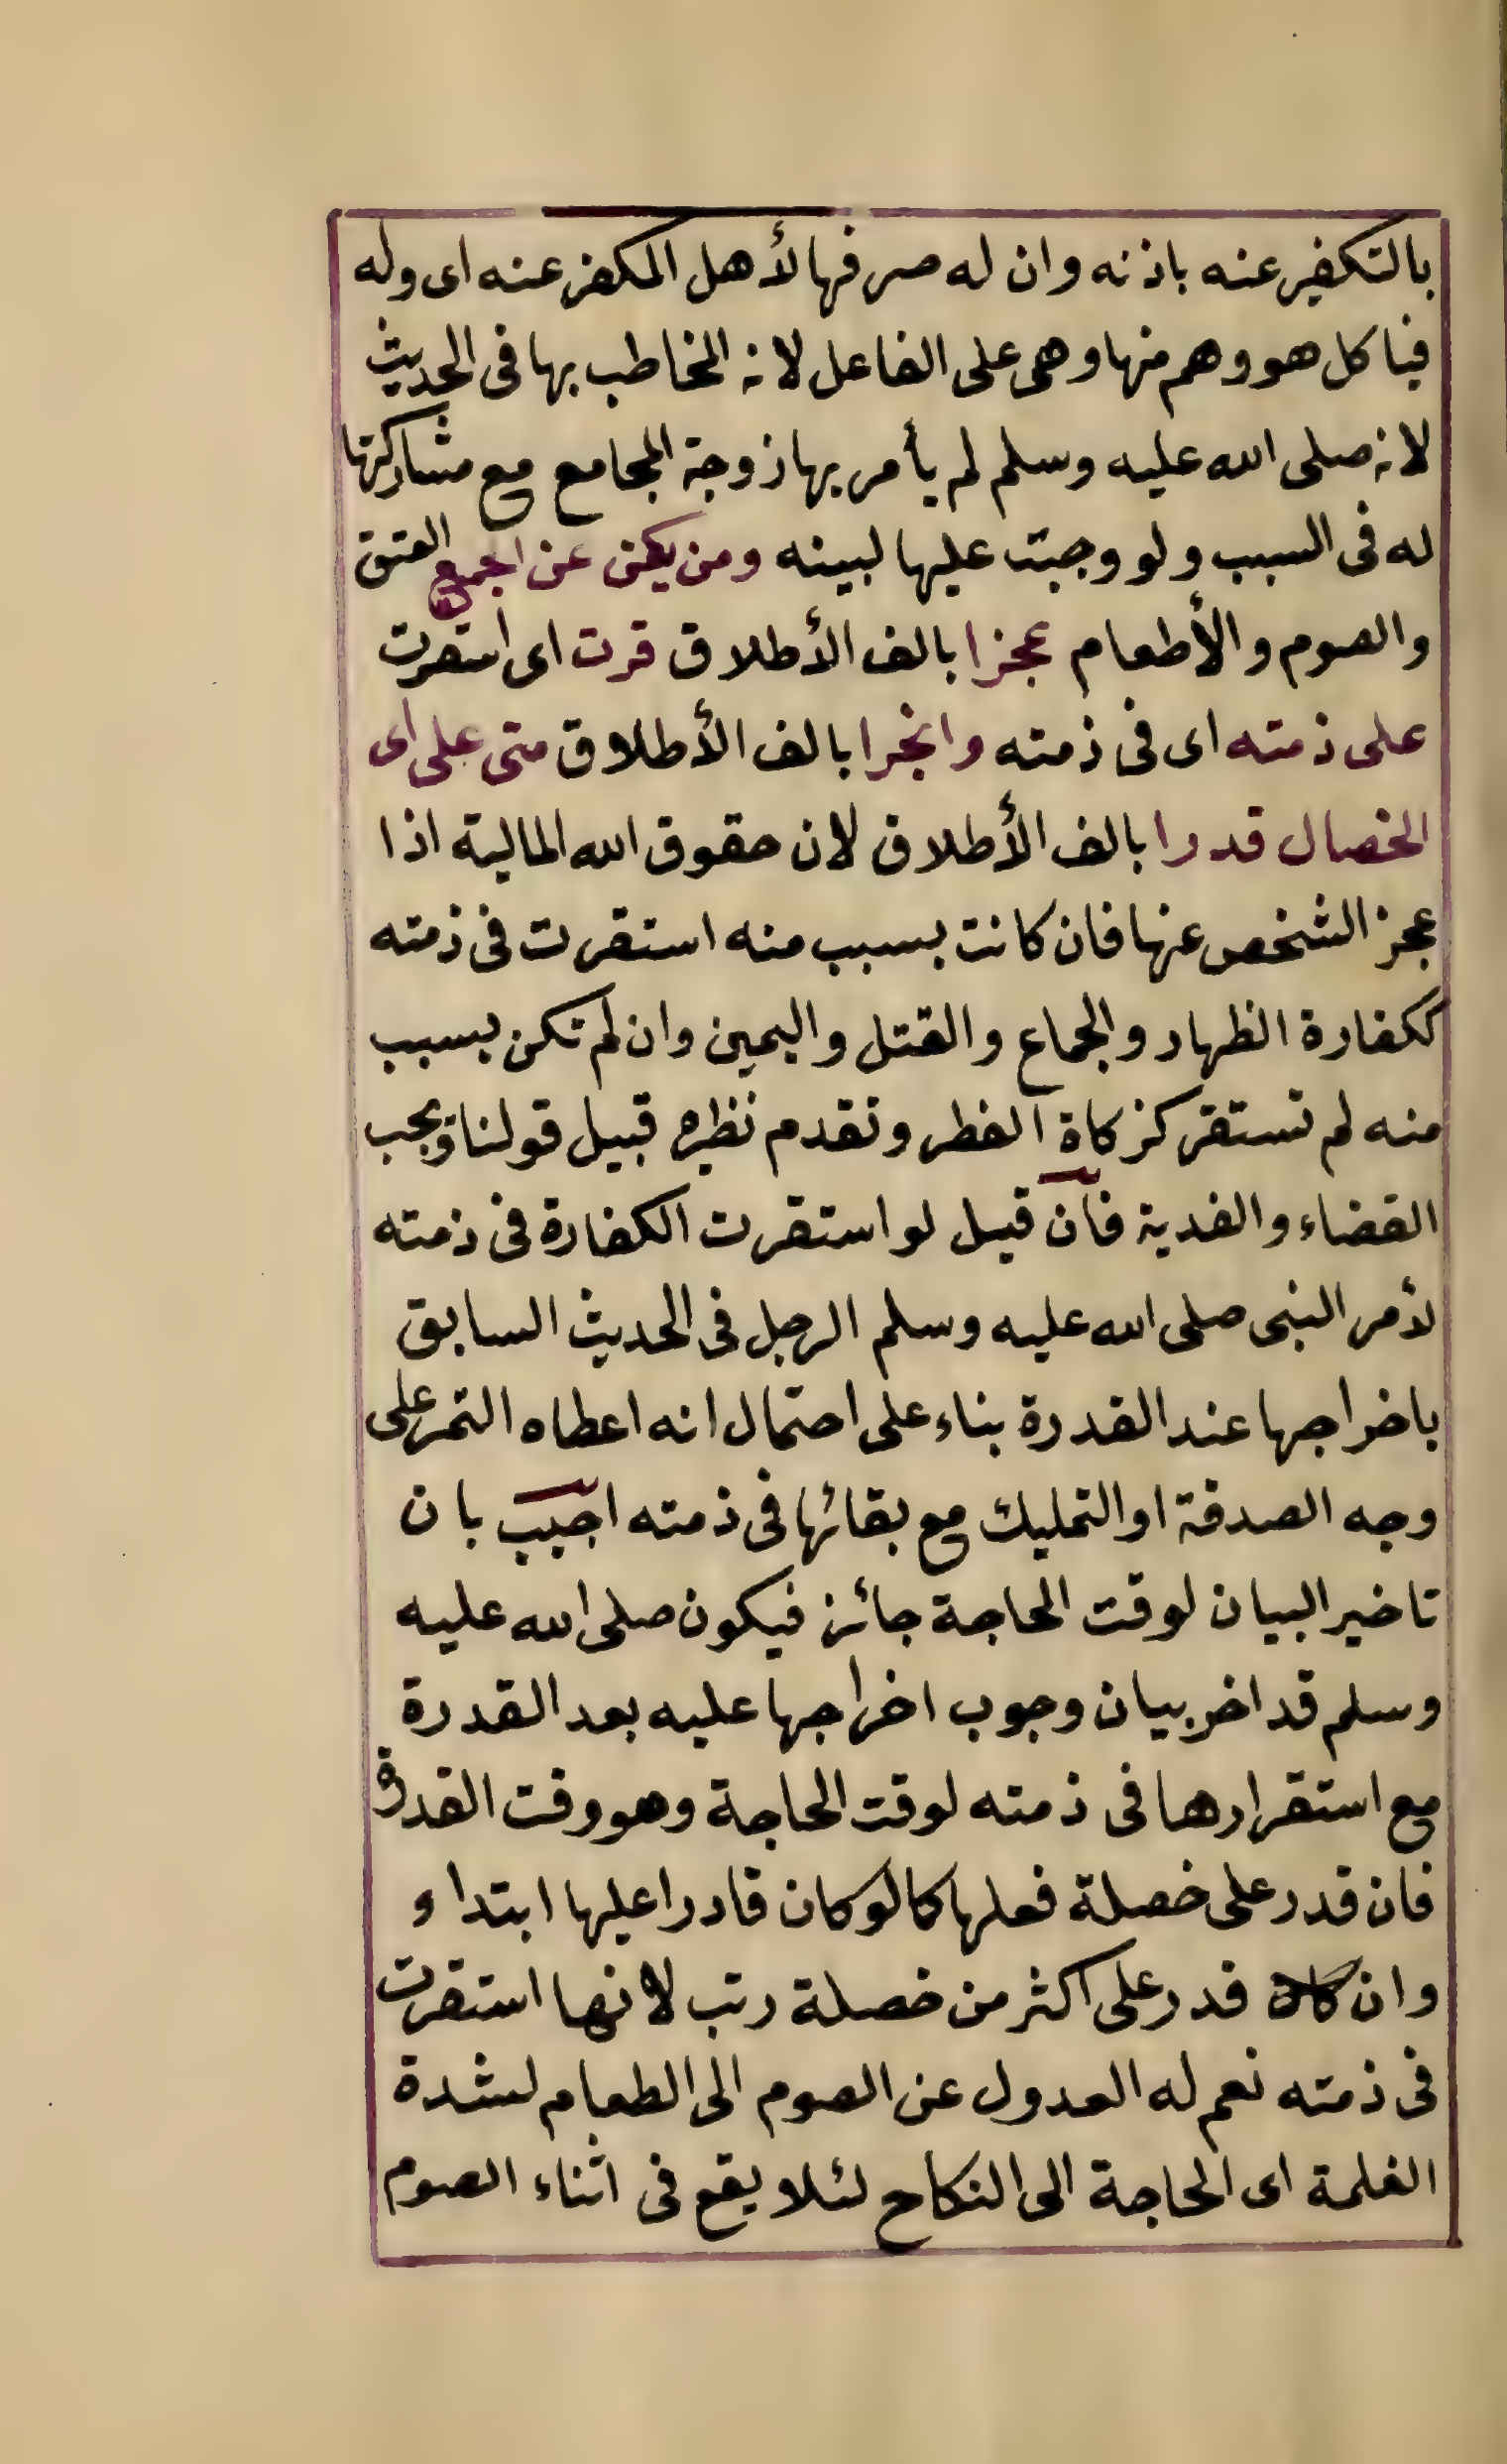 بالتكفير عنه باذنه وان له صرفها لأهل المكفر عنه اى وله
فياكل هو وهم منها وهى على الفاعل لانه المخاطب بها فى الحديث
لانه صلى الله عليه وسلم لم يأمر بها زوجة المجامع مع مشاركتها
له فى السبب ولو وجبت عليها لبينه ومن يكن عن اجميع العتق
والصوم والأطعام عجزا بالف الأطلاق قرت اى استقرت
على ذمته اى فى ذمته وانجرا بالف الأطلاق متى على اى
الخصال قدرا بالف الأطلاق لان حقوق الله المالية اذا
عجز الشخص عنها فان كانت بسبب منه استقرت فى ذمته
ككفارة الظهار والجماع والقتل واليمين وان لم تكن بسبب
منه لم تستقر كزكاة الفطر وتقدم نظيره قبيل قولنا ويجب
القضاء والفدية فان قيل لو استقرت الكفارة فى ذمته
لأمر النبى صلى الله عليه وسلم الرجل فى الحديث السابق
باخراجها عند القدرة بناء على احتمال انه اعطاه التمر على
وجه الصدقة او التمليك مع بقائها فى ذمته اجيب بان
تاخير البيان لوقت الحاجة جائز فيكون صلى الله عليه
وسلم قد اخر بيان وجوب اخراجها عليه بعد القدرة
مع استقرارها فى ذمته لوقت الحاجة وهو وقت القدرة
فان قدر على خصلة فعلها كما لو كان قادرا عليها ابتداء
وان قدر على اكثر من خصلة رتب لانها استقرت
فى ذمته نعم له العدول عن الصوم الى الطعام لشدة
الغلمة اى الحاجة الى النكاح لئلا يقع فى اثناء الصوم